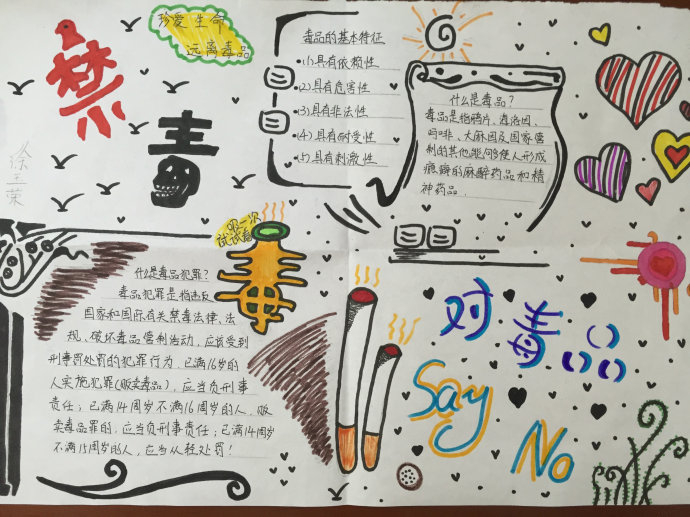 禁毒
珍爱生命
远离毒品
毒品的基本特征
(1)具有依赖性
(2)具有危害性
(3)具有非法性
(4)具有耐受性
(5)具有刺激性
什么是毒品?
毒品是指鸦片、海洛因、
吗啡、大麻因及国家管
制的其他能够使人形成
瘾癖的麻醉药品和精
神药品.
吸一次
试试看
什么是毒品犯罪?
毒品犯罪是指违反
国家和国际有关禁毒法律、法
规、破坏毒品管制活动,应该受到
刑事罚处罚的犯罪行为.已满16岁的
人实施犯罪(贩卖毒品),应当负刑事
责任;已满14周岁不满16周岁的人,贩
卖毒品罪的,应当负刑事责任;已满14周岁
不满18周岁的人,应当从轻处罚!
对毒品
Say
No